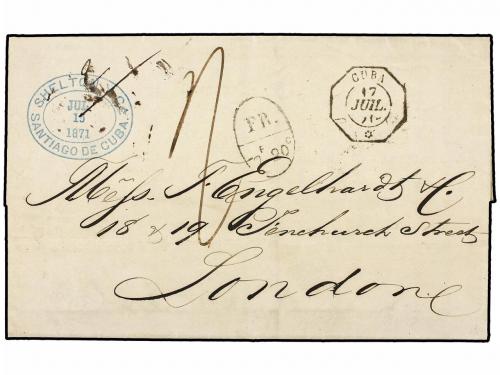 SHELTON & Co
JUL
15
1871
SANTIAGO DE CUBA.
CUBA
17
JUIL.
71
FR.
F
90c
Mess. T. Engelhardt & C.
18 & 19 Fenchurch Street
London